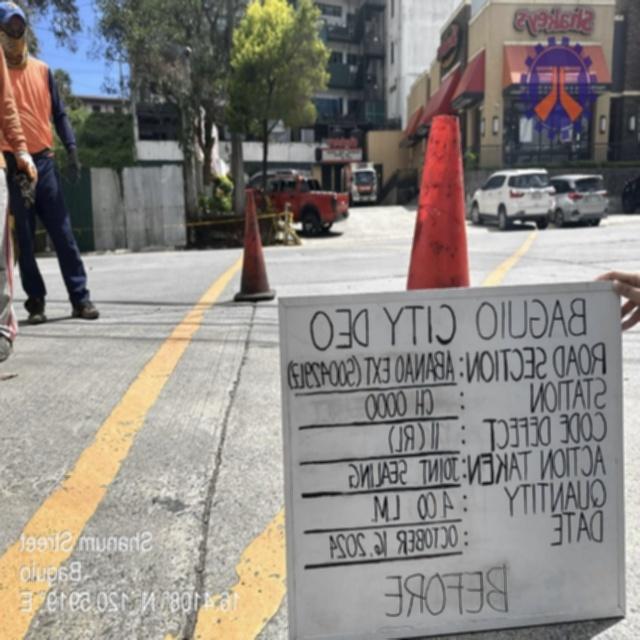 Shakey's
BAGUIO CITY DEO
ROAD SECTION: ABANAO EXT (S00472LZ)
STATION : CH 0000
CODE DEFECT : 11 (RL)
ACTION TAKEN: JOINT SEALING
QUANTITY : 4.00 LM.
DATE : OCTOBER 16, 2024
BEFORE
Shanum Street
Baguio
16.4108° N, 120.5919° E